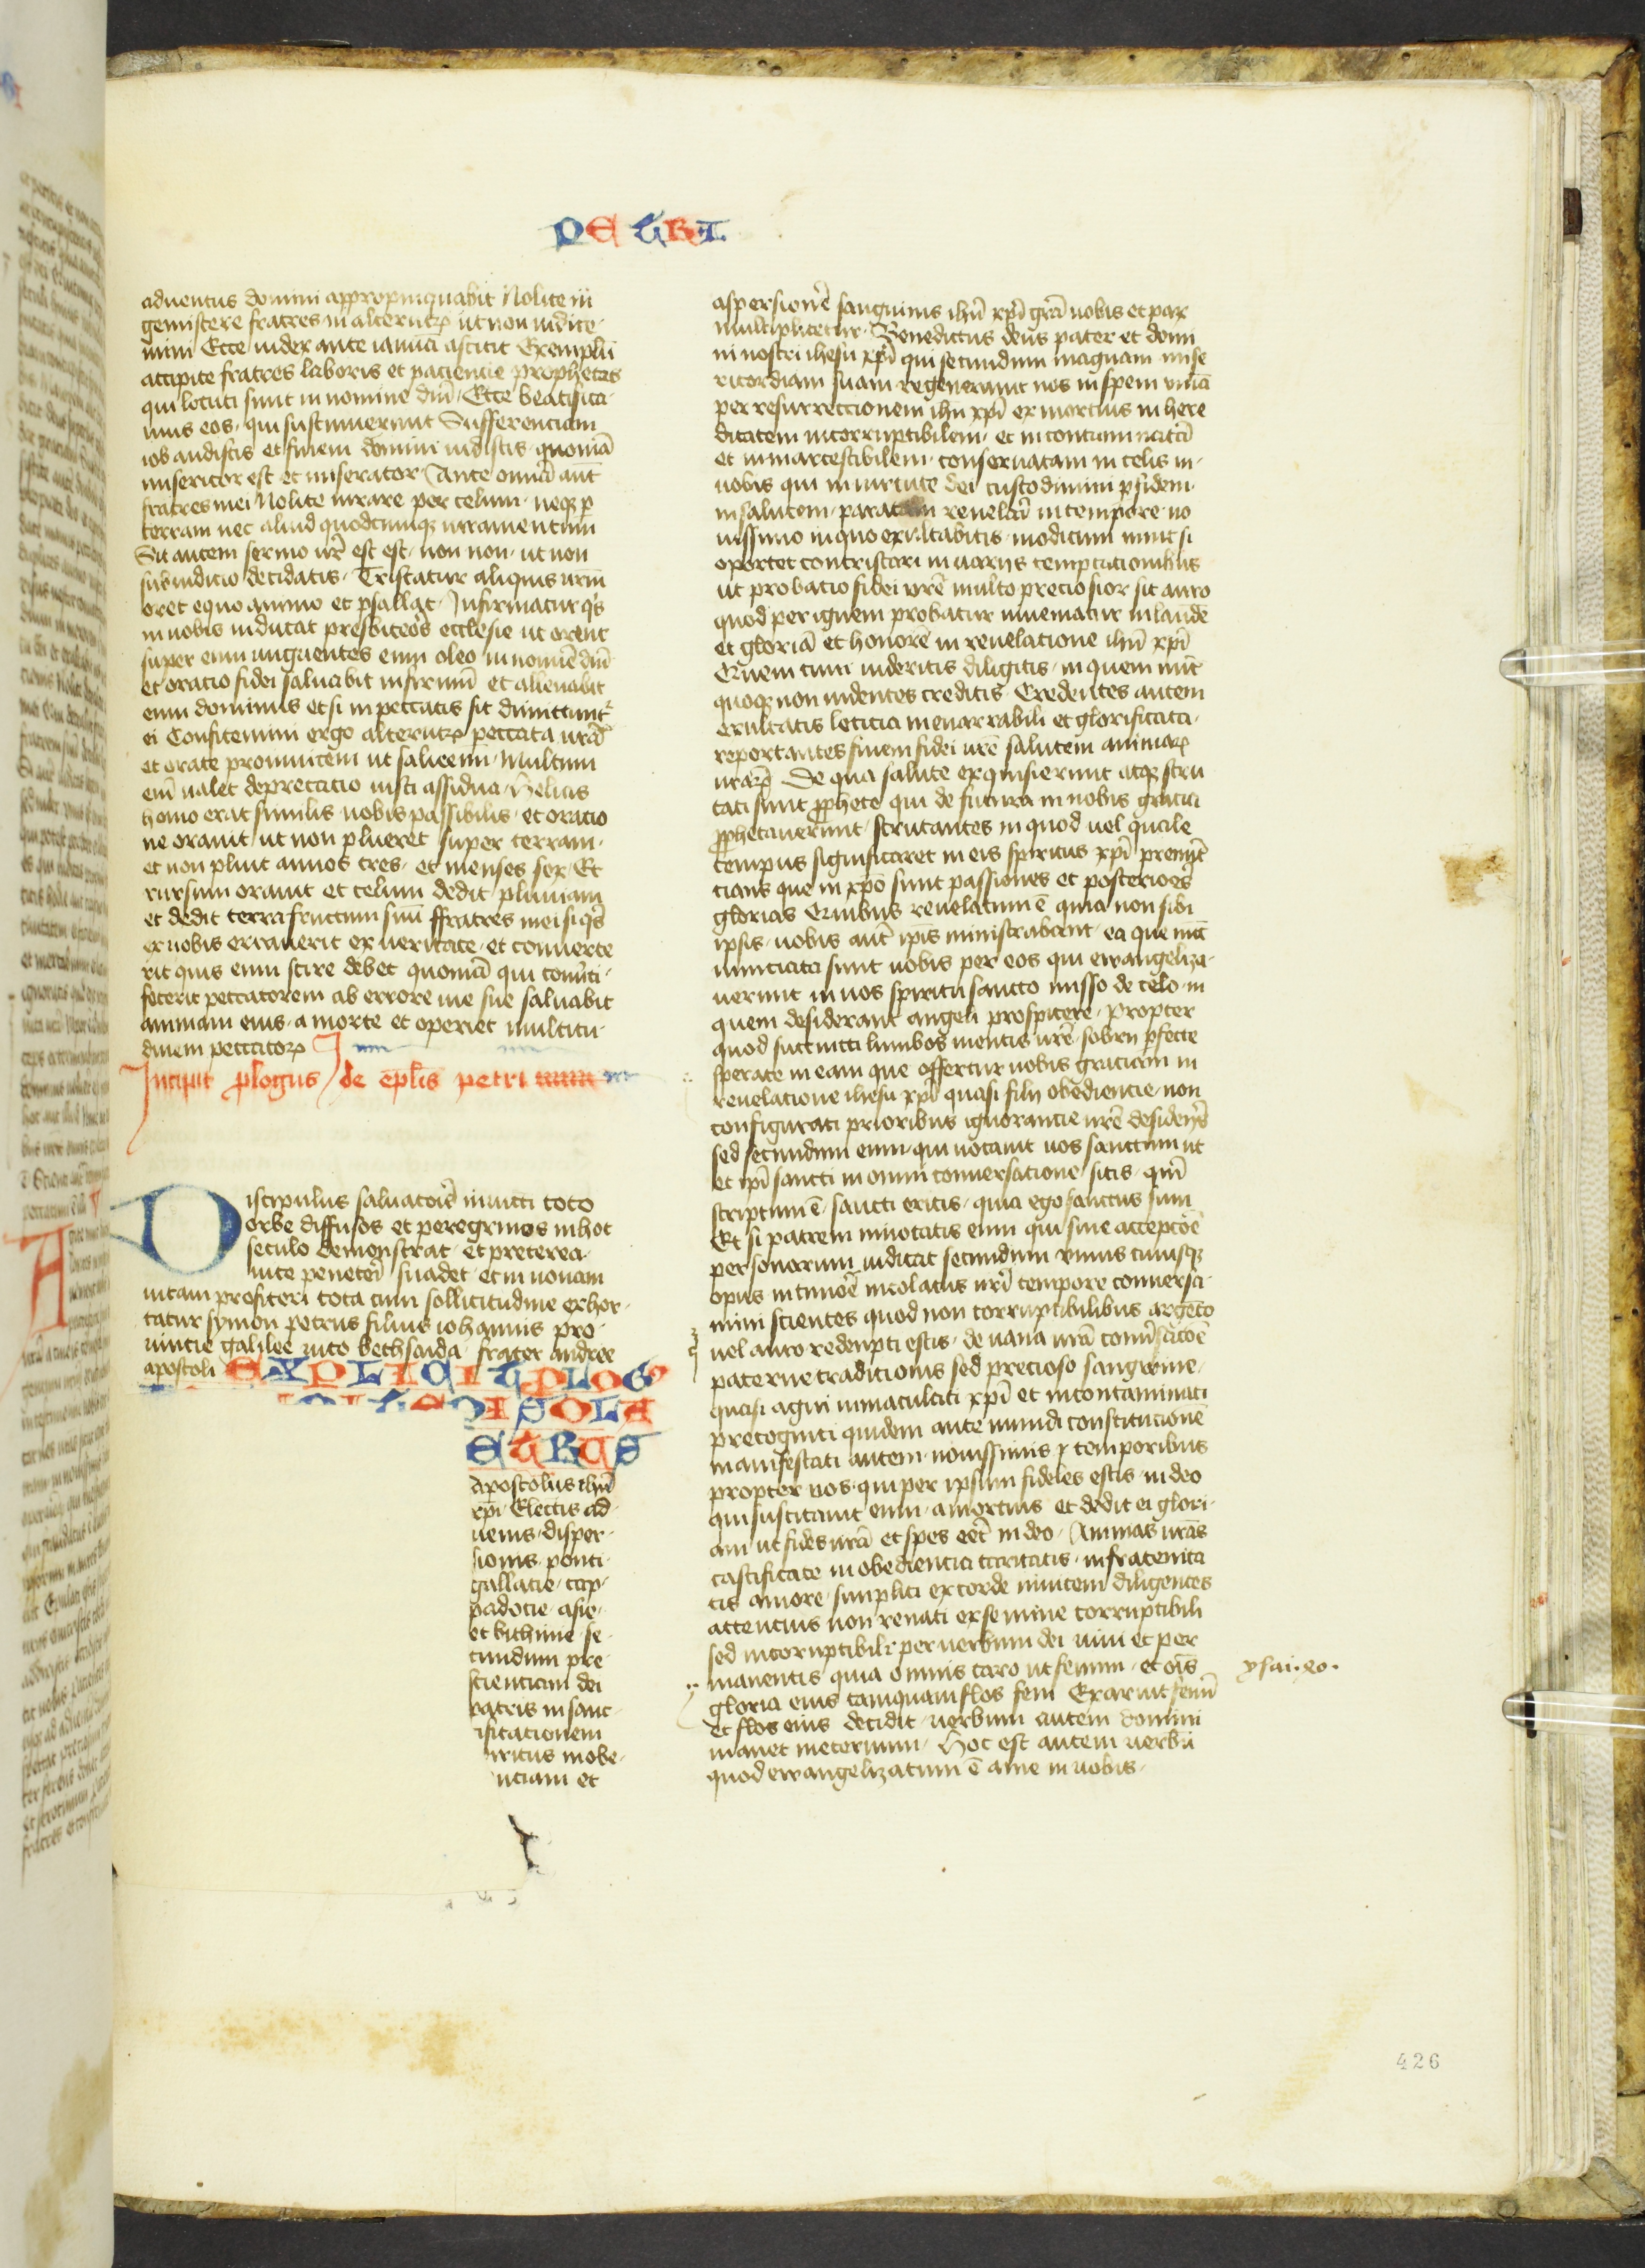 PETRI
aduentus domini appropinquabit Nolite in
gemiscere fratres in alterutrꝝ ut non iudice
mini Ecce iudex ante ianuā astitit Exemplū
accipite fratres laboris et paciencie prophetas
qui locuti sunt in nomine dnī Ecce beatifica
mus eos qui sustinuerunt Sufferenciam
iob audistis et finem domini uidistis quoniā
misericor est et miserator Ante omnia aut̄
fratres mei Nolite iurare per celum neqꝫ ꝑ
terram nec aliud quodcumqꝫ iuramentum
Sit autem sermo ur̄ est est non non ut non
sub iudicio decidatis Tristatur aliquis urm̄
oret equo animo et psallat Infirmatur q's
in uobis inducat presbiteōs ecclesie ut orent
super eum unguentes eum oleo in nomīe dnī
et oratio fidei saluabit infirmū et alleuabit
eum dominus et si in peccatis sit dimittunt'
ei Confitemini ergo alterutrꝝ peccata urā
et orate pro inuicem ut saluemini Multum
enī ualet deprecatio iusti assidua Helias
homo erat similis nobis passibilis et oratio
ne orauit ut non plueret super terram
et non pluit annos tres et menses sex Et
rursum orauit et celum dedit pluuiam
et dedit terra fructum suū ffratres mei si q's
ex uobis errauerit ex ueritate et conuerte
rit quis eum scire debet quoniā qui conuti
fecerit peccatorem ab errore uie sue saluabit
animam eius a morte et operiet multitu
dinem peccatorꝝ
Incipit ꝓlogus de epl̄is petri
Discipulus saluatoīs inuicti toto
orbe diffusos et peregrinos in hoc
seculo demonstrat et preterea
uite peneterī suadet et in nouam
uitam profiteri tota cum sollicitudine exhor
tatur symon petrus filius iohannis pro
uincie galilee uico bethsaida frater andree
apostoli EXPLICIT PLOG'
ETRUS
apostolus ihū
xpī Electis ad
uenis disper
sionis ponti
gallacie cap
padocie asie
et bithinie se
cundum pre
scienciam dei
patris in sanc
ificationem
iritus in obe
nciam et
aspersionē sanguinis ihū xpī grā uobis et pax
multiplicetur Benedictus deus pater et domi
ni nostri ihesu xpī qui secundum magnam mise
ricordiam suam regenerauit nos in spem uiuā
per resurreccionem ihū xpī ex mortuis in here
ditatem incorruptibilem et incontaminatā
et inmarcescibilem conseruatam in celis in
uobis qui in uirtute dei custodimini ꝑ fidem
in salutem paratam reuelari in tempore no
uissimo in quo exultabitis modicum nunc si
oportet contristari in uarijs temptacionibus
ut probacio fidei urē multo preciosior sit auro
quod per ignem probatur inueniatur in laudē
et gloriā et honorē in reuelacione ihū xpī
Quem cum uideritis diligitis in quem nūc
quoqꝫ non uidentes creditis Credentes autem
exultatis leticia inenarrabili et glorificata
reportantes finem fidei urē salutem animaꝝ
uraꝝ De qua salute exquisierunt atqꝫ scru
tati sunt ꝓphete qui de futura in uobis gracia
ꝓphetauerunt scrutantes in quod uel quale
tempus significaret in eis spiritus xpī prenūc
cians que in xpō sunt passiones et posterioēs
glorias Quibus reuelatum ē quia non sibi
ipsis uobis aut̄ ip̄is ministrabant ea que nūc
nunciata sunt uobis per eos qui ewangeliza
uerunt in uos spiritu sancto misso de celo in
quem desiderant angeli prospicere Propter
quod succincti lumbos mentis urē sobrij ꝑfecte
sperate in eam que offertur uobis graciam in
reuelatione ihesu xpī quasi filij obediencie non
configurati prioribus ignorancie urē desiderijs
sed secundum eum qui uocauit uos sanctum ut
et ipī sancti in omni conuersacione sitis qm̄
scriptum ē sancti eritis quia ego sanctus sum
Et si patrem inuocatis eum qui sine accepcōe
personarum iudicat secundum unius cuiusqꝫ
opus in timoē incolatus urī tempore conuersa
mini scientes quod non corruptibilibus argēto
uel auro redempti estis de uana urā conuersacōe
paterne tradicionis sed precioso sangwine
quasi agni inmaculati xpī et incontaminati
precogniti quidem ante mundi constitucionē
manifestati autem nouissimis temporibus
propter uos qui per ipsum fideles estis in deo
qui suscitauit eum a mortuis et dedit ei glori
am ut fides urā et spes eēt in deo Animas urās
castificate in obediencia caritatis in fraternita
tis amore simplici ex corde inuicem diligentes
attencius non renati ex semine corruptibili
sed incoruptibili per uerbum dei uiui et per
manentis quia omnis caro ut fenum et oīs
ysai.40.
gloria eius tamquam flos feni Exaruit fenū
et flos eius decidit uerbum autem domini
manet in eternum Hoc est autem uerbū
quod ewangelizatum ē a me in uobis
426